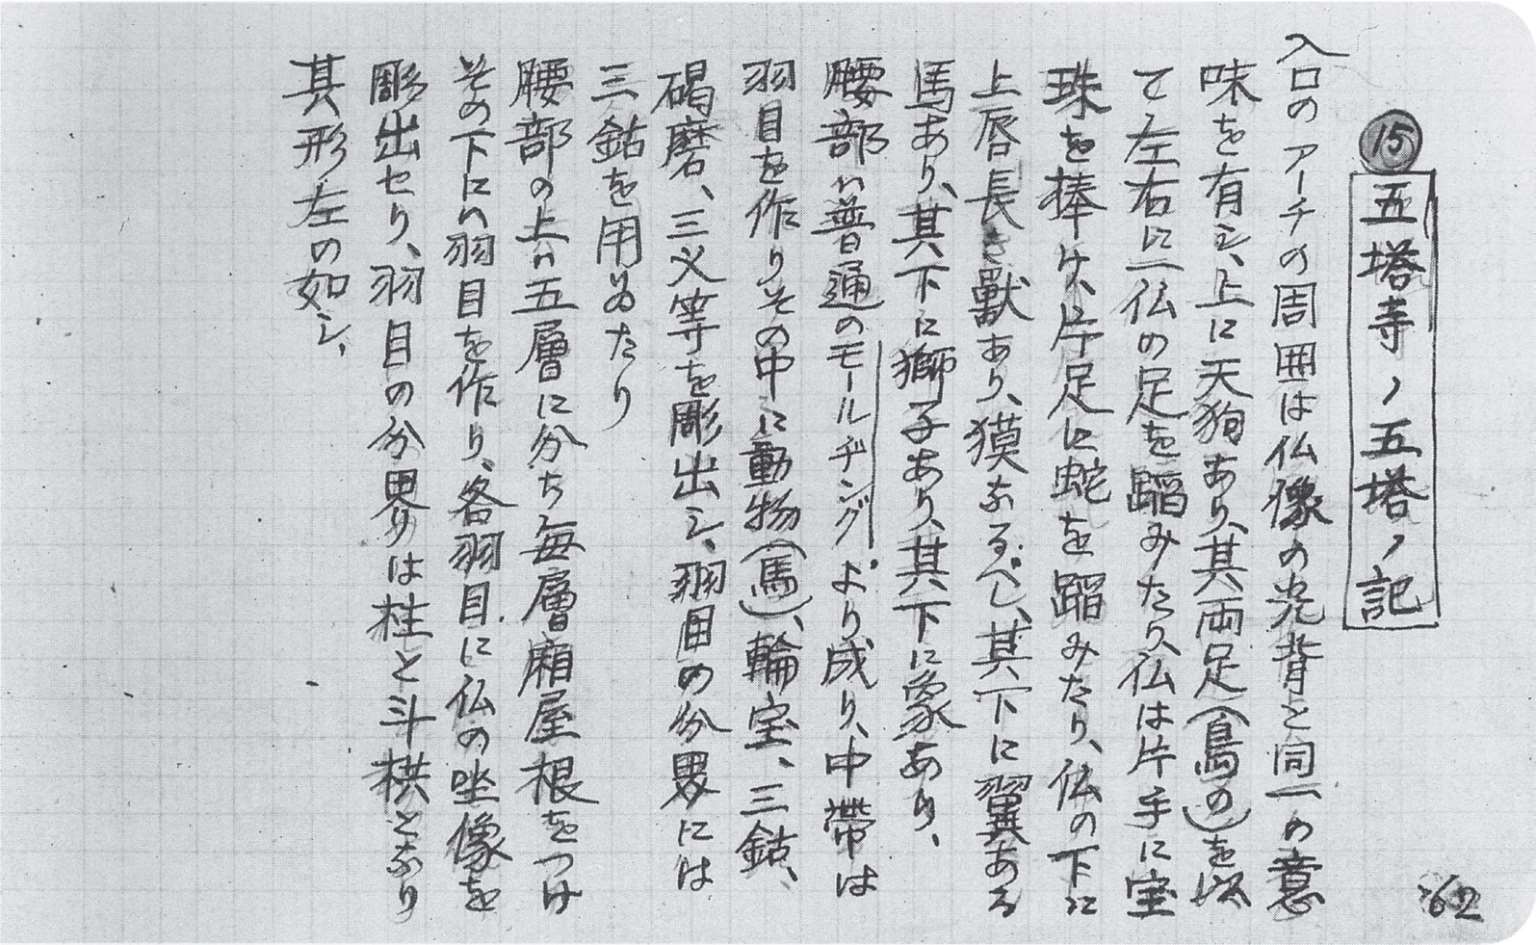 ⑮ 五塔寺ノ五塔ノ記
入口のアーチの周囲は仏像の光背と同一の意
味を有シ、上に天狗あり、其両足(鳥の)を以
て左右に二仏の足を蹈みたり、仏は片手に宝
珠を捧け、片足に蛇を蹈みたり、仏の下に
上唇長き獸あり、獏なるべし、其下に翼ある
馬あり、其下に獅子あり、其下に象あり、
腰部ハ普通のモールヂングより成り、中帶は
羽目を作りその中に動物(馬)、輪宝、三鈷、
碣磨、三叉等を彫出シ、羽目の分界には
三鈷を用ゐたり
腰部の上ハ五層に分ち每層廂屋根をつけ
その下にハ羽目を作り、各羽目に仏の坐像を
彫出セり、羽目の分界りは柱と斗栱となり
其形左の如シ、
'62